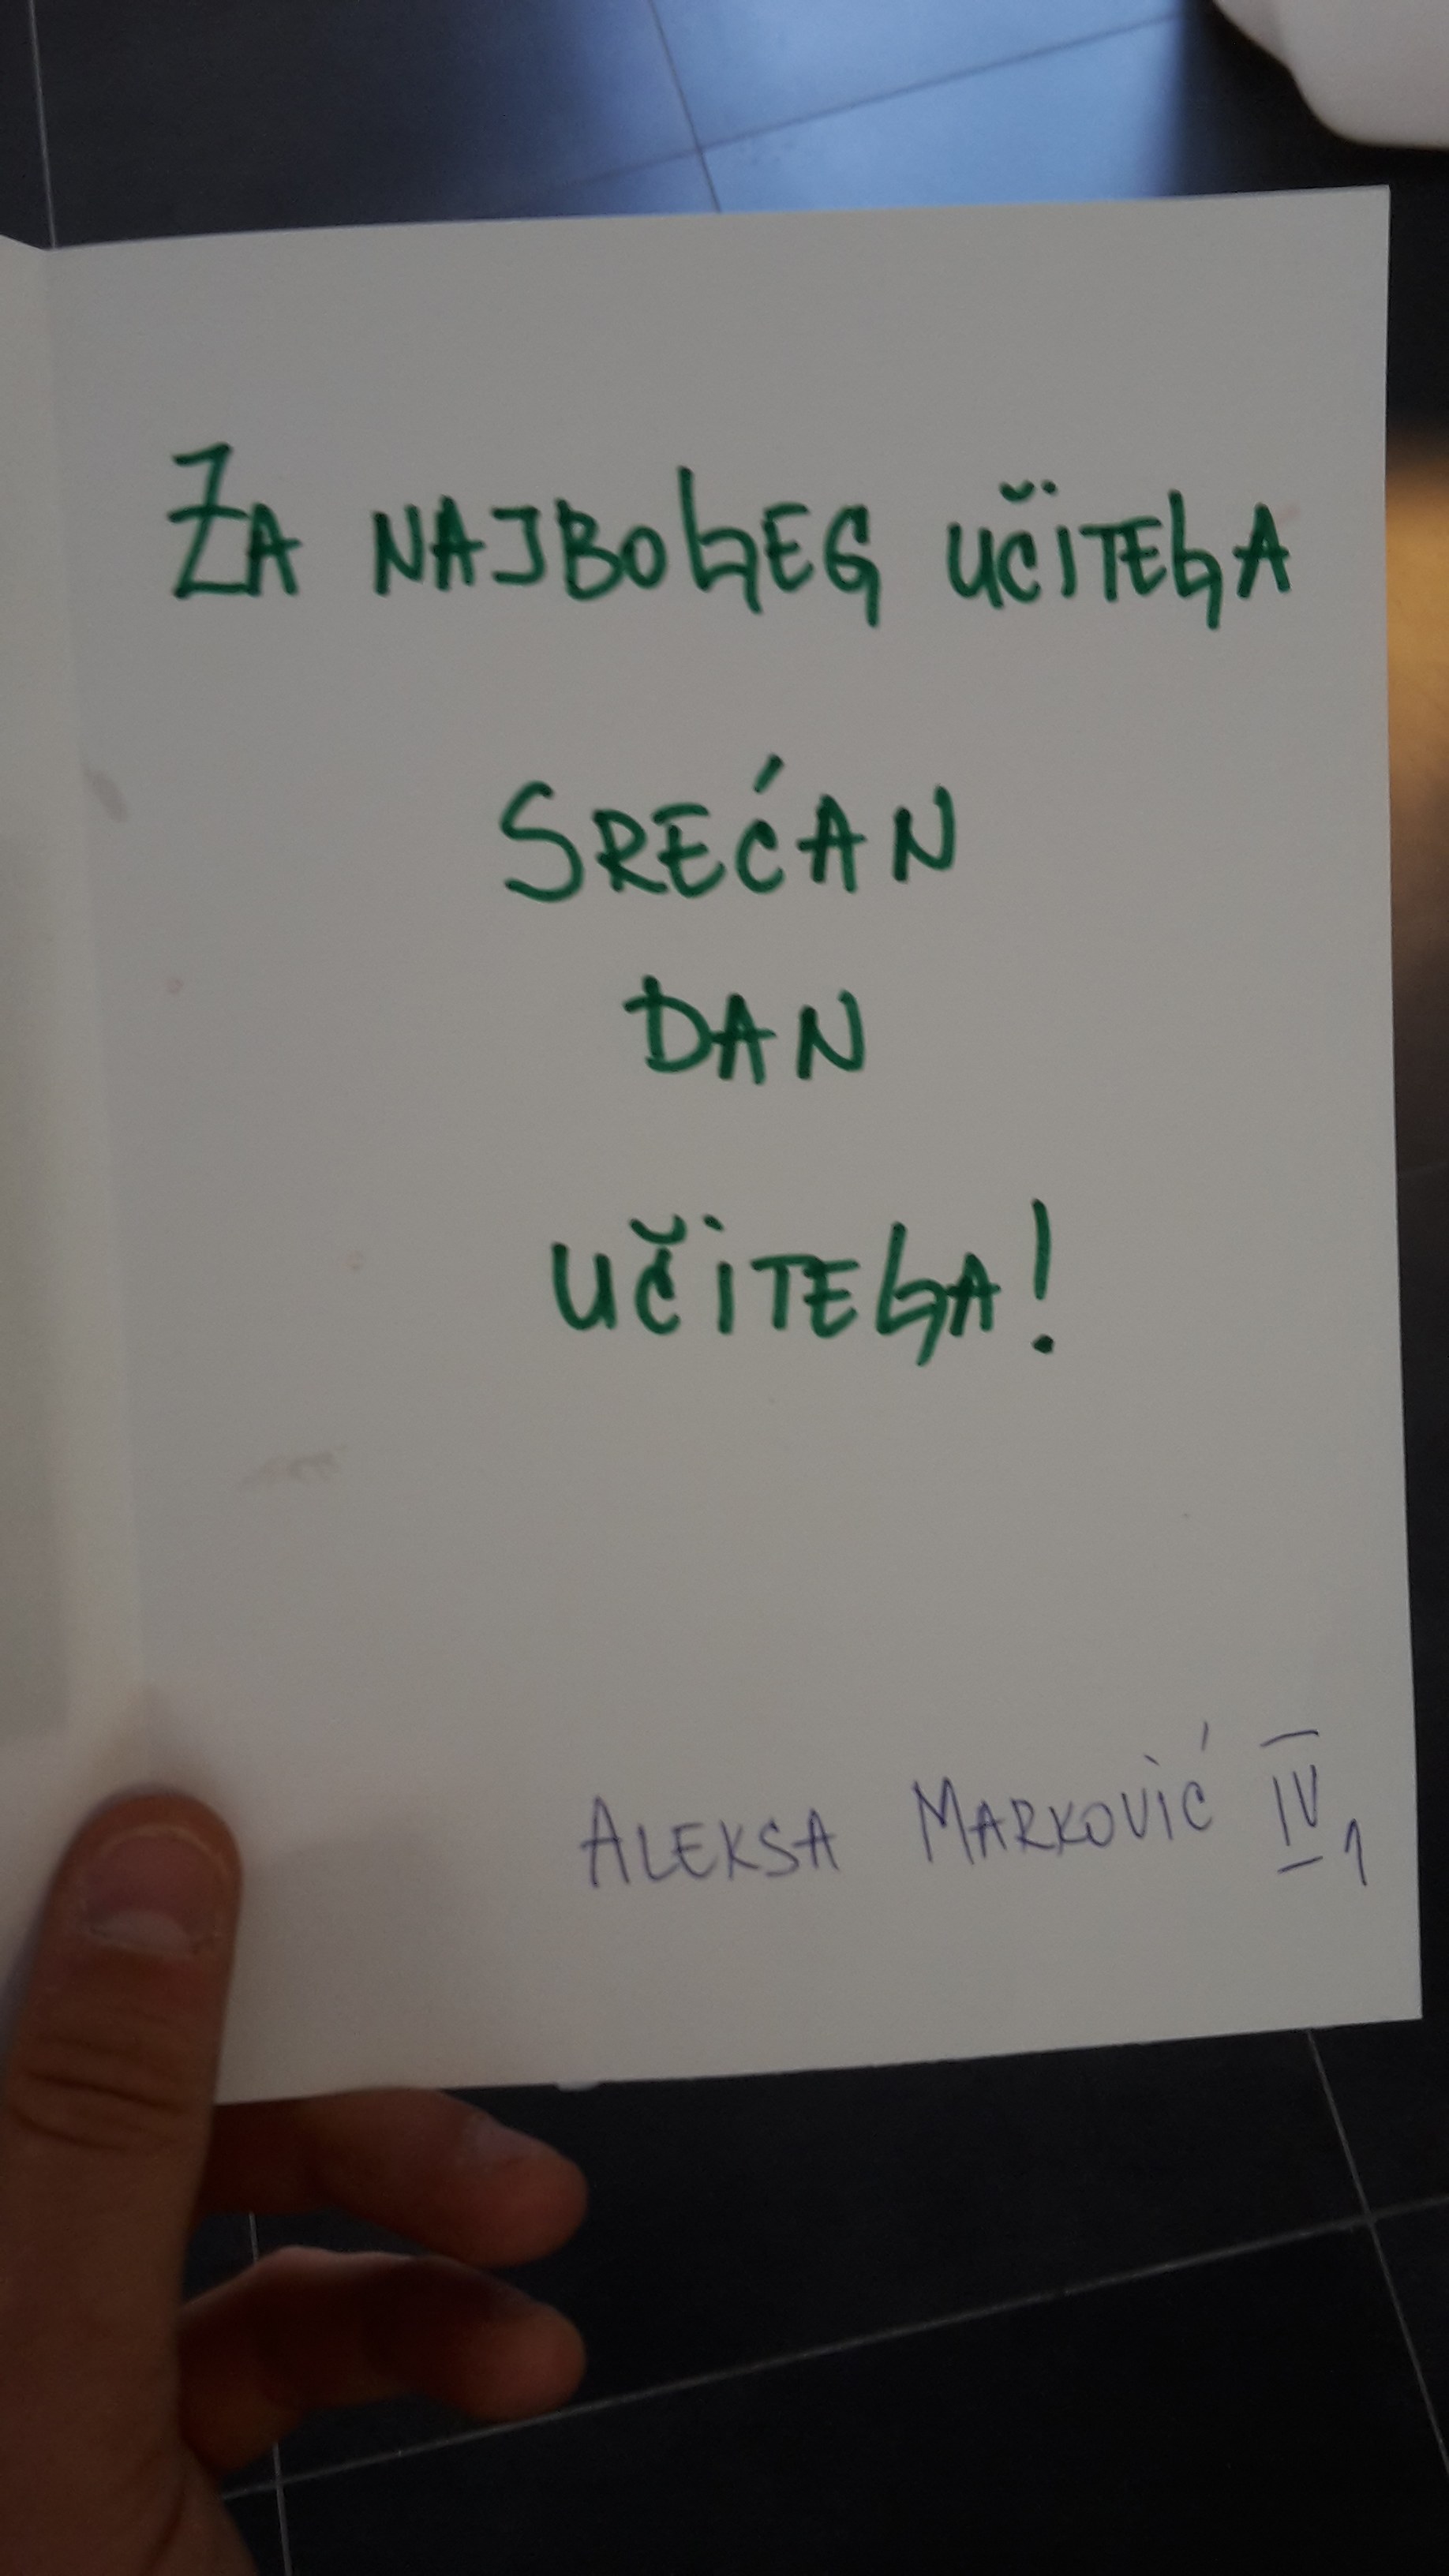 ZA NAJBOLJEG UČITELJA
SREĆAN
DAN
UČITELJA!
ALEKSA MARKOVIĆ IV 1